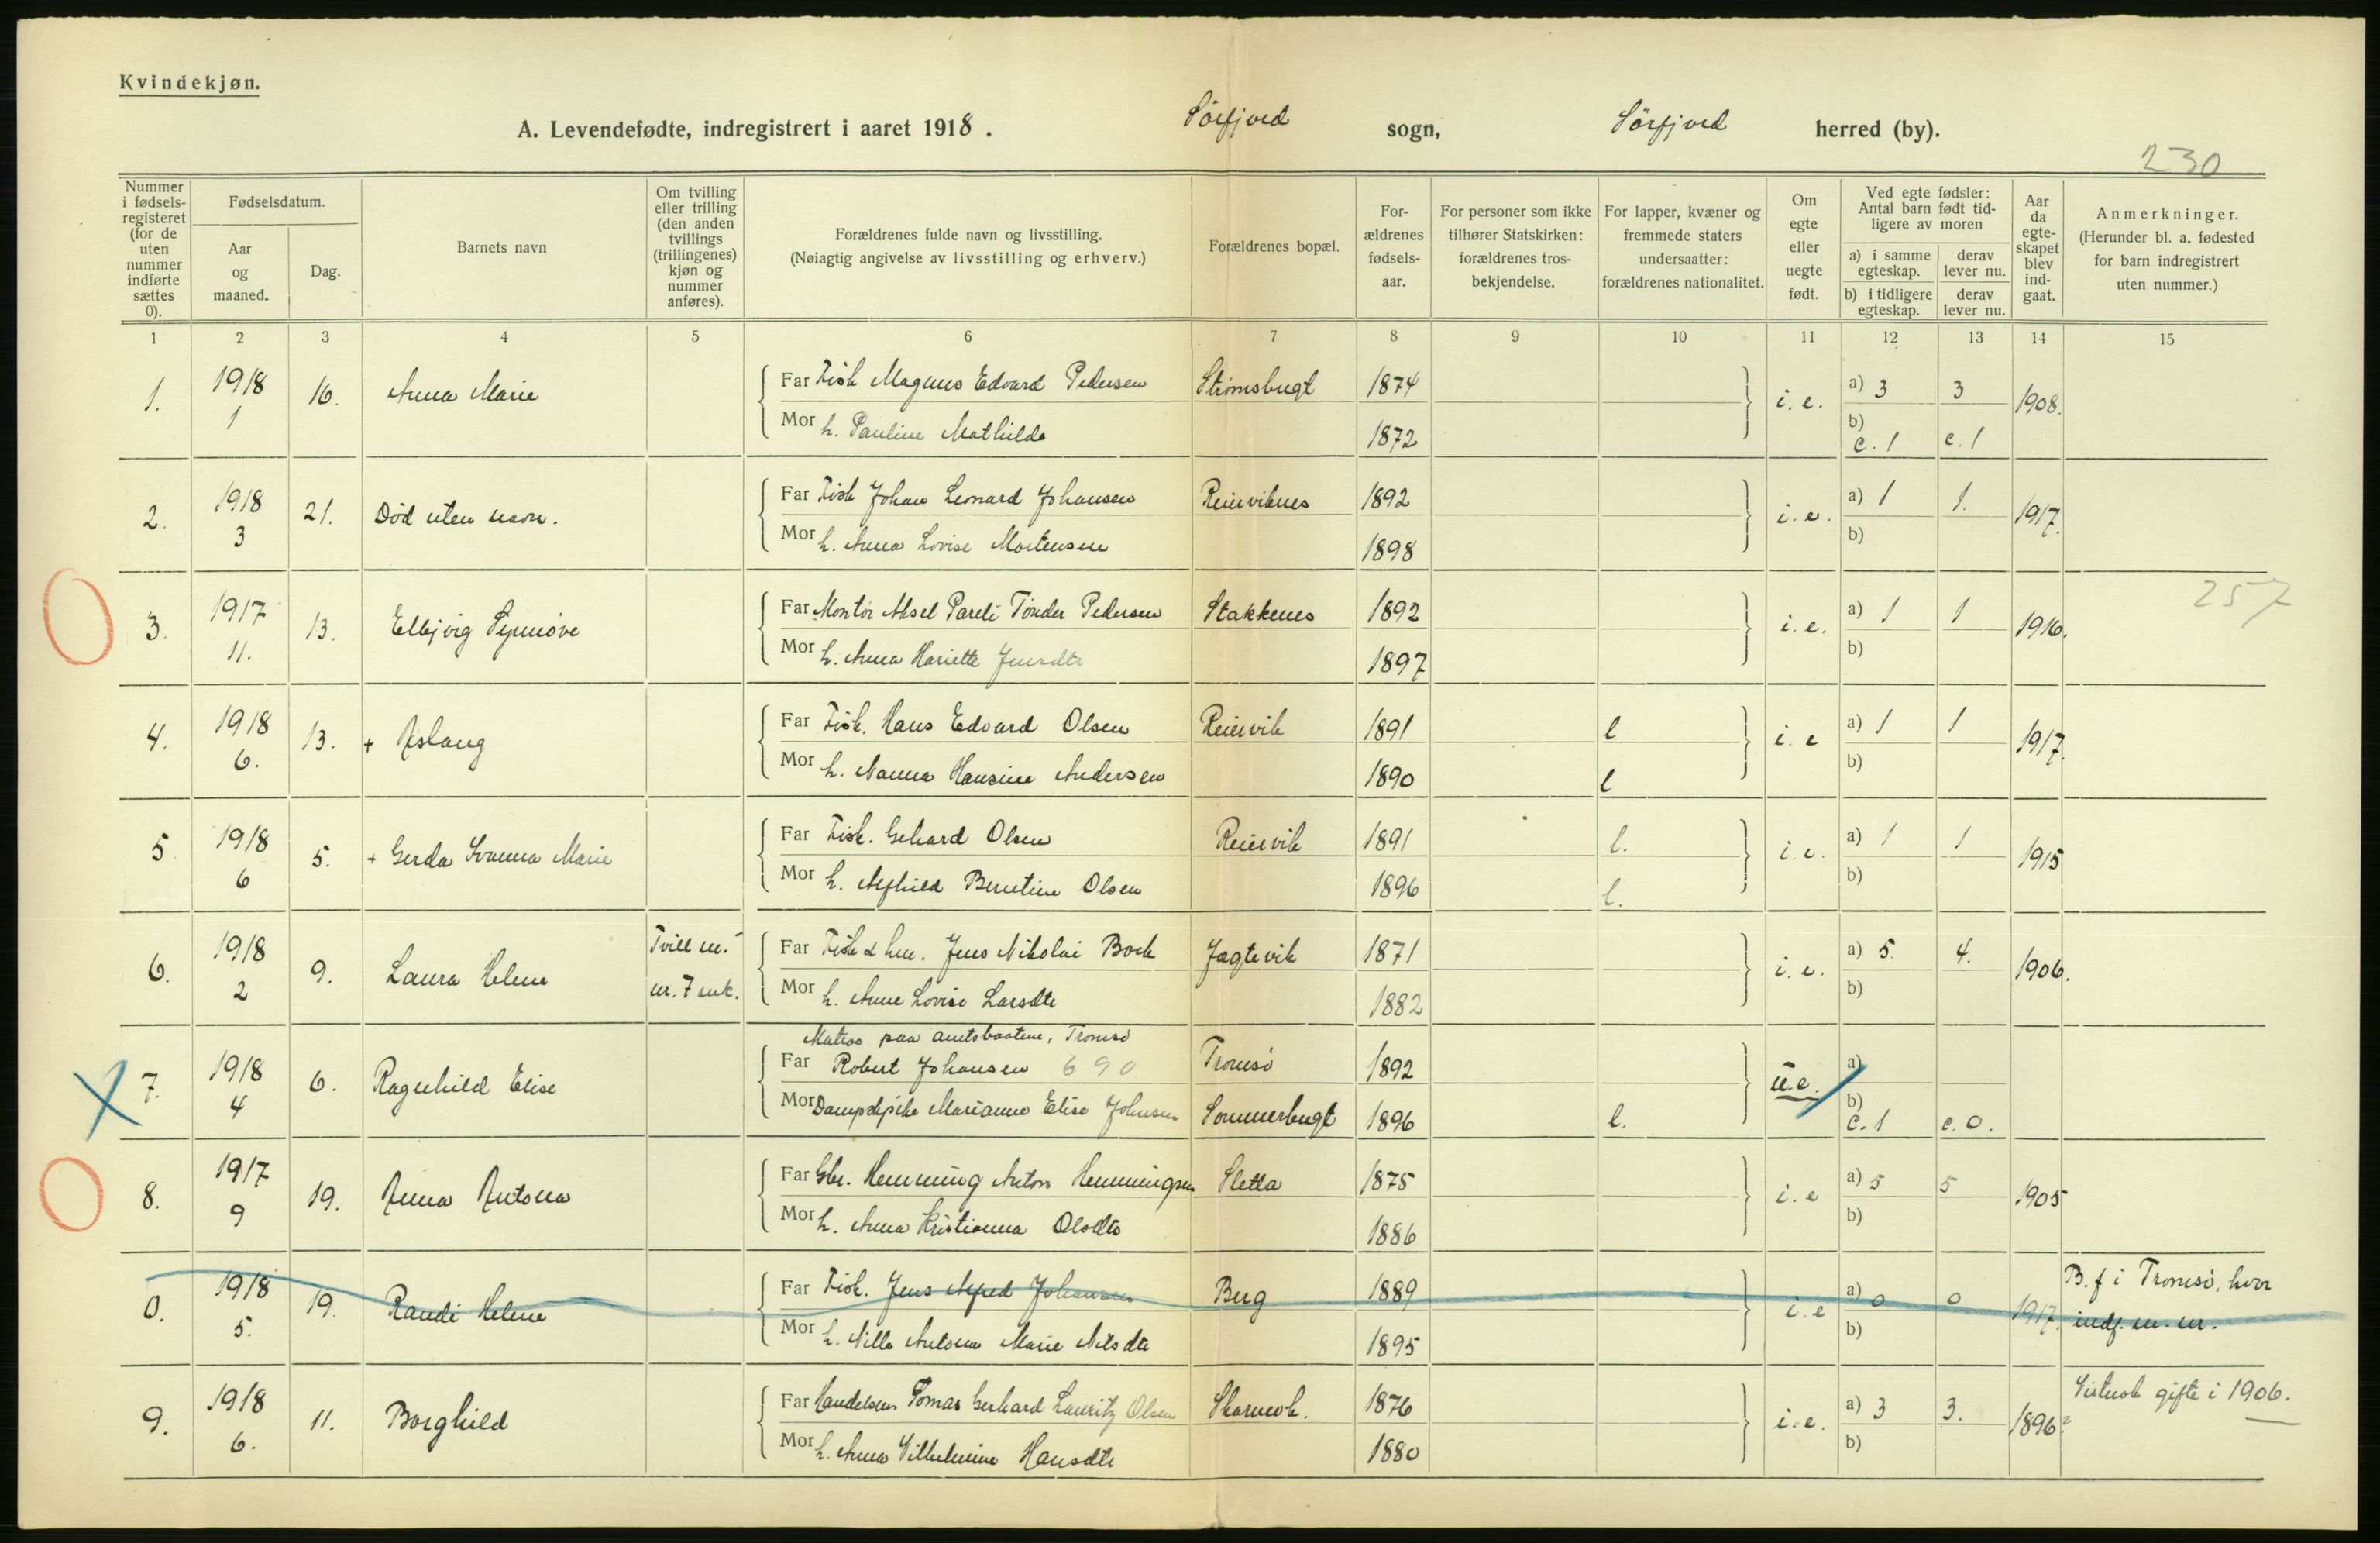 Kvindekjøn.
A. Levendefødte, indregistrert i aaret 1918. Sörfjord sogn, Sörfjord herred (by).
230
Nummer i fødselsregisteret (for de uten nummer indførte sættes 0).
Fødselsdatum.
Aar og maaned.
Dag.
Barnets navn
Om tvilling eller trilling (den anden tvillings (trillingenes) kjøn og nummer anføres).
Forældrenes fulde navn og livsstilling.
(Nøiagtig angivelse av livsstilling og erhverv.)
Forældrenes bopæl.
Forældrenes fødselsaar.
For personer som ikke tilhører Statskirken: forældrenes trosbekjendelse.
For lapper, kvæner og fremmede staters undersaatter: forældrenes nationalitet.
Om egte eller uegte født.
Ved egte fødsler: Antal barn født tidligere av moren
a) i samme egteskap. derav lever nu.
b) i tidligere egteskap. derav lever nu.
Aar da egteskapet blev indgaat.
Anmerkninger.
(Herunder bl. a. fødested for barn indregistrert uten nummer.)
1 2 3 4 5 6 7 8 9 10 11 12 13 14 15
1. 1918 1 16. Anna Marie
Far Fisk Magnus Edvard Pedersen Strömsbugt 1874 i. e. a) 3 3 1908.
Mor h. Pauline Mathilde 1872 b) c. 1 c. 1
2. 1918 3 21. Död uten navn.
Far Fisk Johan Leonard Johansen Reierviknes 1892 i. e. a) 1 1. 1917.
Mor h. Anna Lovise Mortensen 1898 b)
3. 1917 11. 13. Elbjörg Synnöve
Far Montör Aksel Pareli Tönder Pedersen Stakkenes 1892 i. e. a) 1 1 1916. 257
Mor h. Anna Hariette Jensdtr 1897 b)
4. 1918 6. 13. + Aslaug
Far Fisk. Hans Edvard Olsen Reiervik 1891 l i. e a) 1 1 1917.
Mor h. Nanna Hansine Andersen 1890 l b)
5. 1918 6 5. + Gerda Ivanna Marie
Far Fisk. Gehard Olsen Reiervik 1891 l. i. e. a) 1 1 1915
Mor h. Alfhild Berntine Olsen 1896 l. b)
6. 1918 2 9. Laura Helene Tvill m. nr. 7 mk.
Far Fisk & hm. Jens Nikolai Bock Jagtevik 1871 i. e. a) 5. 4. 1906.
Mor h. Anne Lovise Larsdtr 1882 b)
Matros paa amtsbaatene, Tromsö
7. 1918 4 6. Ragnhild Elise
Far Robert Johansen 690 Tromsö 1892 u. e. a)
Mor Marianne Elise Johnsen Sommerbugt 1896 l. b) c. 1 c. 0.
8. 1917 9 19. Anna Antona
Far Gbr. Hemming Anton Hemmingsen Sletta 1875 i. e a) 5 5 1905
Mor h. Anna Kristianna Olsdtr 1886 b)
0. 1918 5. 19. Randi Helene
Far Fisk. Jens Alfred Johansen Berg 1889 i. e a) 0 0 1917. B. f i Tromsö, hvor indf. m. nr.
Mor h. Nilla Antona Marie Nilsdtr 1895 b)
9. 1918 6. 11. Borghild
Far Handelsm Tomas Gerhard Lauritz Olsen 1876 i. e. a) 3 3. 1896? gifte i 1906.
Mor h. Anna Vilhelmine Hansdtr 1880 b)